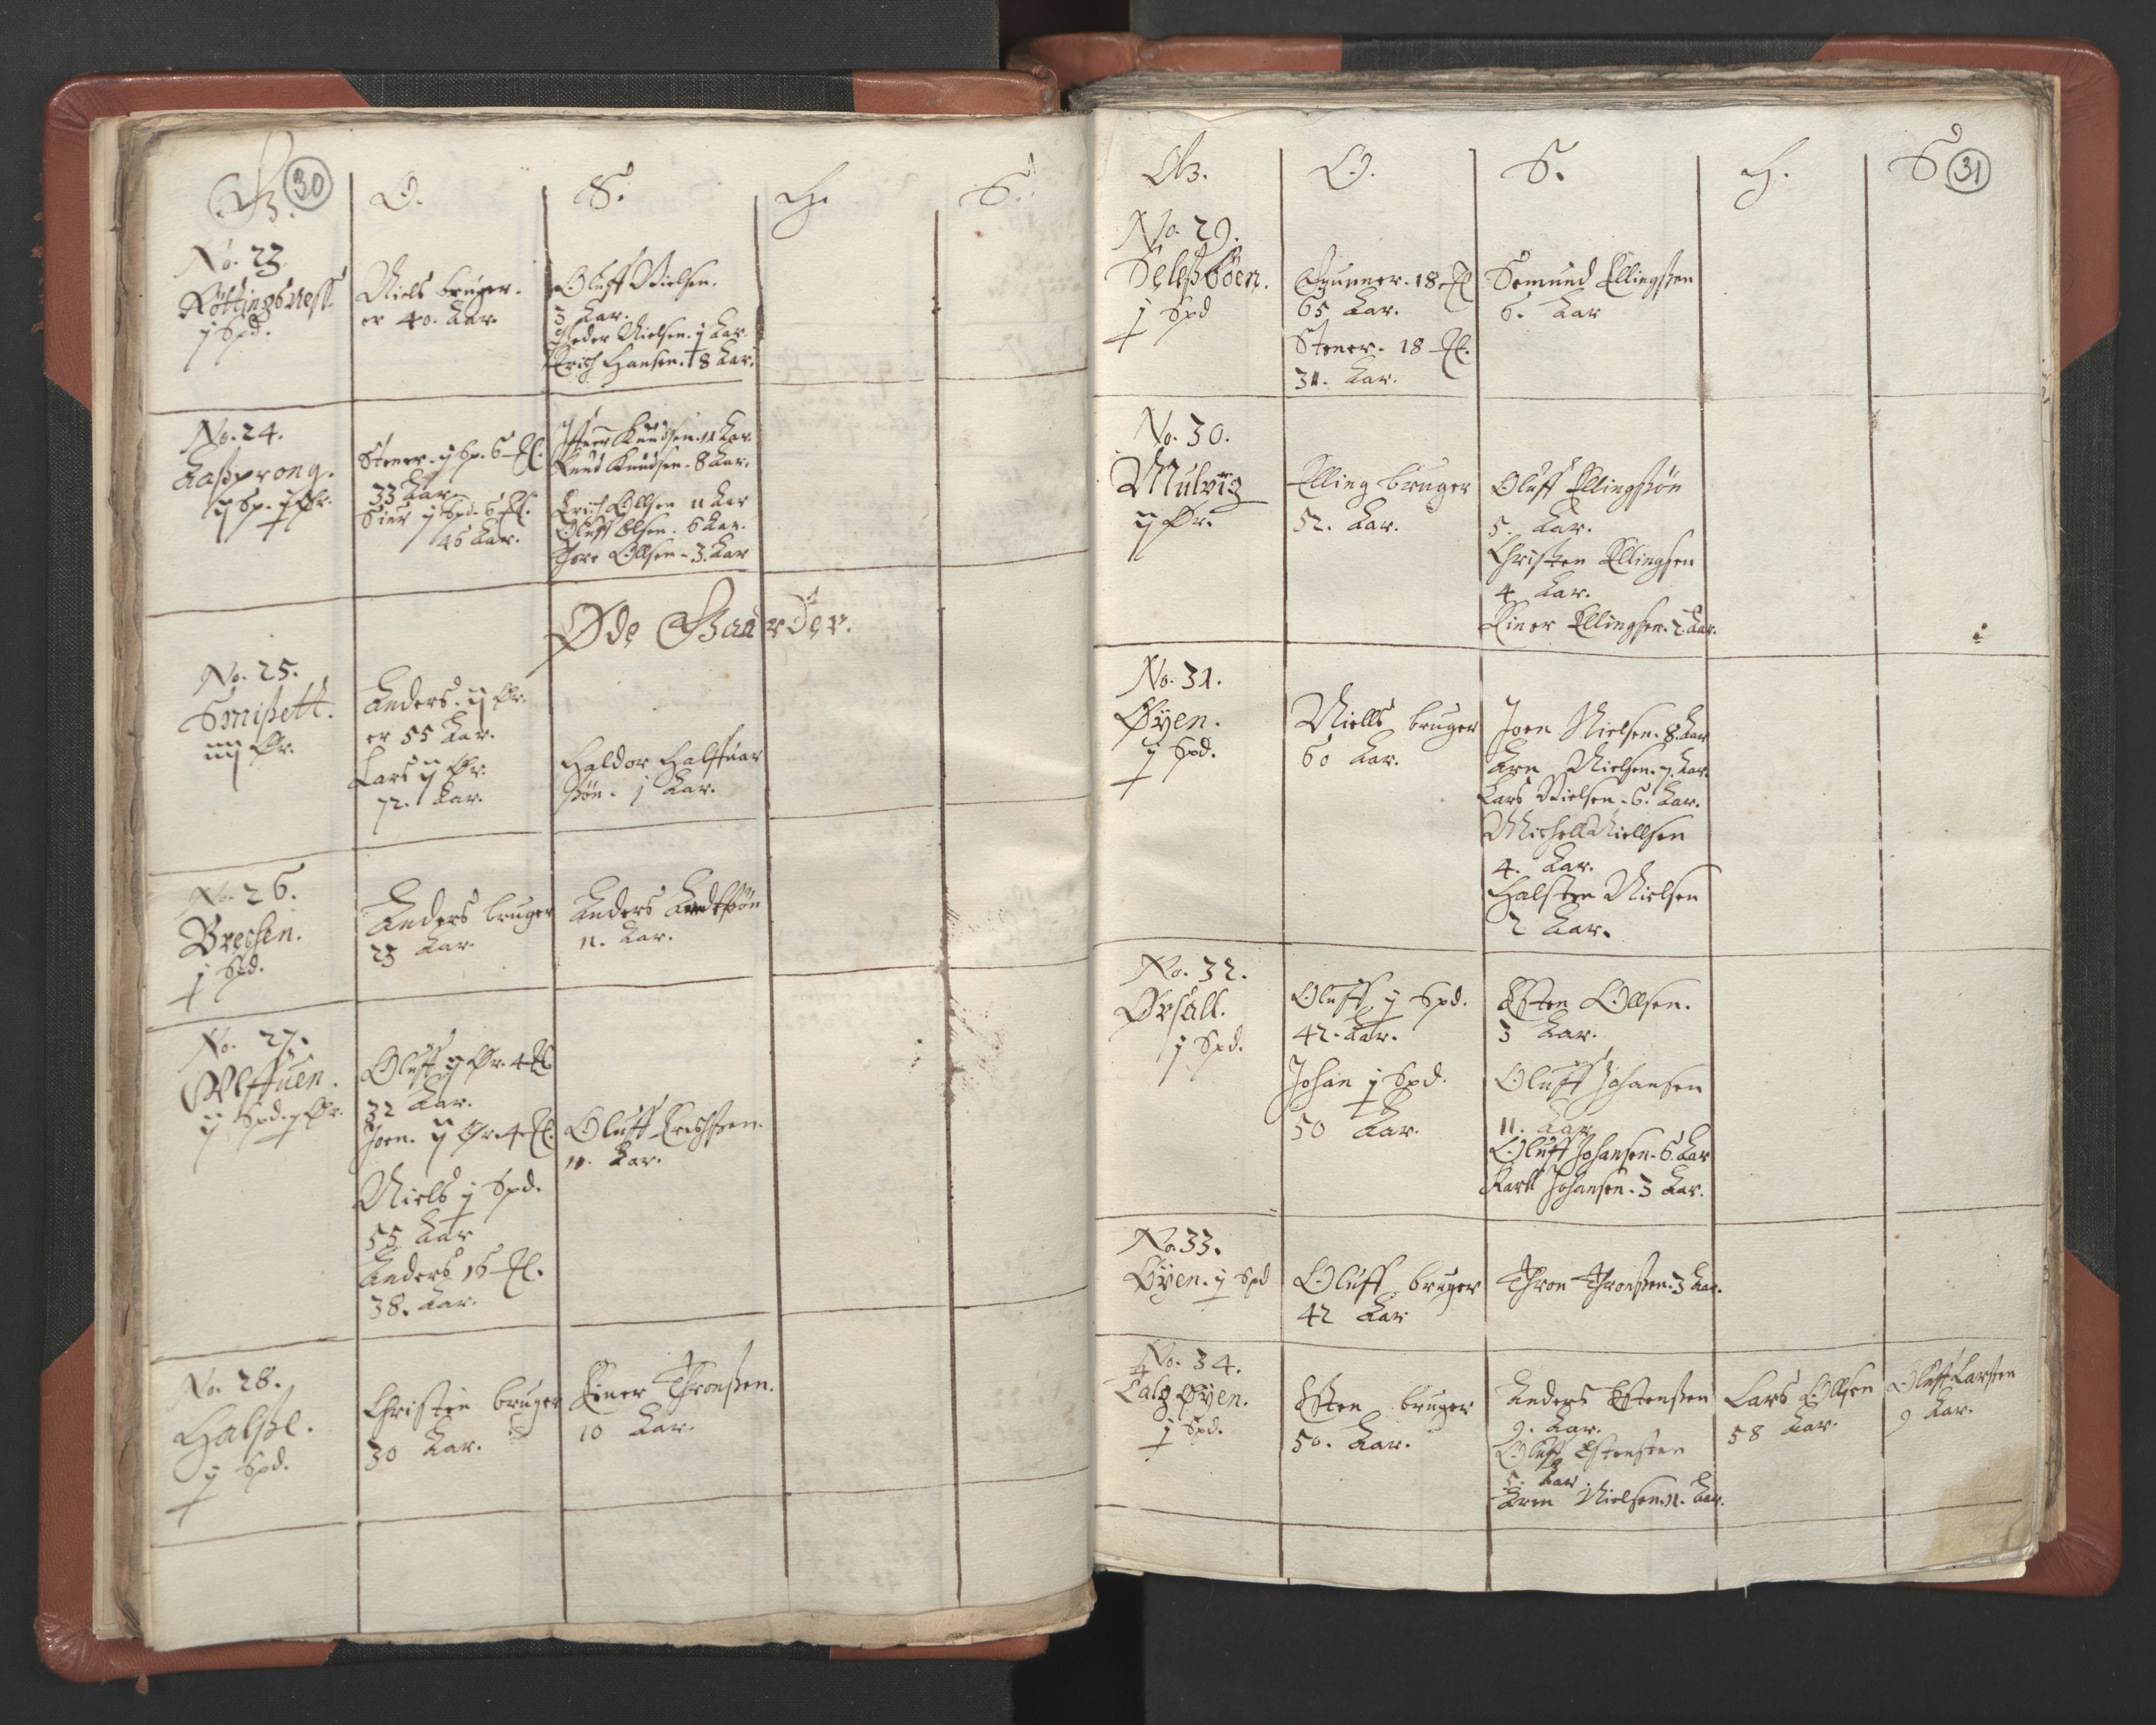 30
G. O. S. H. S.
No. 23
Røttingsness
j Spd.
Niels bruger.
er 40. Aar.
Oluff Nielsen.
3 Aar.
Peder Nielsen. j Aar.
Erich Hansen. 18 Aar.
No. 24.
Aassprong.
ij Sp. j Ør.
Stener. j Sp. 6
33 Aar.
Siur j Spd. 6
46 Aar.
Knudsen. 11 Aar
Knud Knudsen. 8 Aar.
Erich Ollsen 11 Aar
Oluff Olsen. 6 Aar.
Tore Ollsen. 3. Aar
Øde Gaarder.
No. 25.
Smissett.
iiij Ør.
Anders. ij Ør.
er 55 Aar.
Lars ij Ør.
72. Aar.
Haldor Halffuar
søn. j Aar.
No. 26.
Bregsen.
j Spd.
Anders bruger
23 Aar.
Anders Andersøn
11. Aar.
No. 27.
Ulffuen.
ij Spd. j Ør.
Oluff ij Ør. 4
32 Aar.
Joen. ij Ør. 4
Niels j Spd.
55 Aar
Anders 16
38. Aar.
Oluff Erichssen.
11. Aar.
No. 28.
Halsse.
j Spd.
Christen bruger
30 Aar.
Einer Thronssen.
10 Aar.
31
G. O. S. H. S
No. 29.
Selessbøen.
j Spd
Gunner. 18
65 Aar.
Stener. 18
31. Aar.
Semund Ellingssen
6. Aar
No. 30.
Mulvig
ij Ør.
Elling bruger
52. Aar.
Oluff Ellingssøn
5. Aar.
Christen Ellingsen
4 Aar.
Einer Ellingsen. 2. Aar.
No. 31.
Øyen.
j Spd.
Niells bruger
60 Aar.
Joen Nielsen. 8. Aar
Arn Nielsen. 7. Aar.
Lars Nielsen. 6. Aar.
Michell Niellsen
4. Aar.
Halsten Nielsen
2 Aar.
No. 32.
Ørsall.
j Spd.
Oluff j Spd.
42. Aar.
Johan j Spd.
50 Aar.
Esten Ollsen.
3 Aar.
Oluff Johansen
11. Aar
Oluff Johansen. 6. Aar
Karll Johansen. 3 Aar.
No. 33.
Øyen. j Spd
Oluff bruger
42 Aar
Thron Thronssen. 3 Aar.
No. 34.
Lalgøyen.
j Spd.
Esten bruger
50. Aar.
Anders Estenssen
9. Aar.
Oluff Estenssen
5. Aar.
Arn Nielsen. 11. Aar.
Lars Ollsen
58 Aar.
Oluff Larssen
9 Aar.